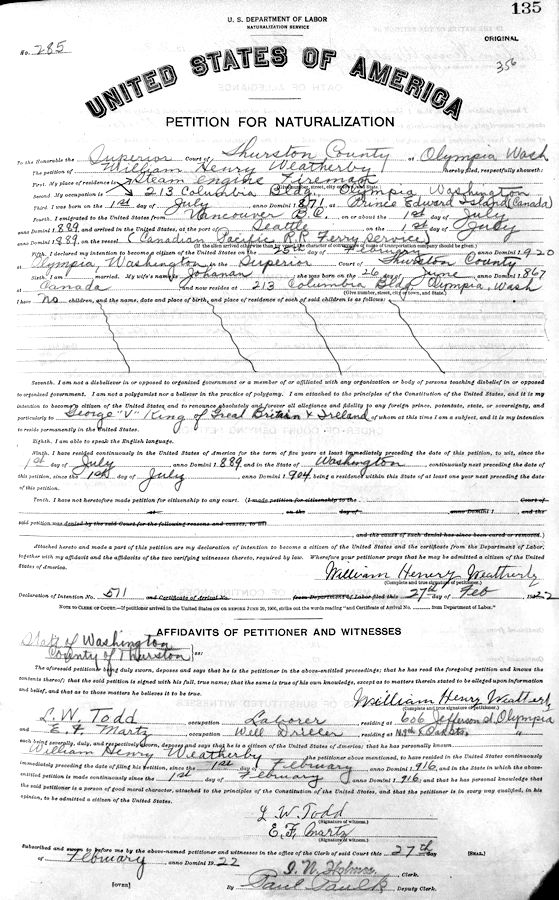 135
U. S. DEPARTMENT OF LABOR
NATURALIZATION SERVICE
No. 285
ORIGINAL
356
UNITED STATES OF AMERICA
PETITION FOR NATURALIZATION
To the Honorable the Superior Court of Thurston County at Olympia Wash
The petition of William Henry Weatherby hereby filed, respectfully showeth:
First. My place of residence is Steam Engine Fireman
(Give number, street, city or town, and State.)
Second. My occupation is 213 Columbia Bldg, Olympia Washington
Third. I was born on the 1st day of July anno Domini 1871 at Prince Edward Island (Canada)
Fourth. I emigrated to the United States from Vancouver B.C. on or about the 1st day of July
anno Domini 1889 and arrived in the United States, at the port of Seattle on the 1st day of July
anno Domini 1889, on the vessel (Canadian Pacific R.R. Ferry Service)
(If the alien arrived otherwise than by vessel, the character of conveyance or name of transportation company should be given.)
Fifth. I declared my intention to become a citizen of the United States on the day of anno Domini 1920
at Olympia, Washington in the Superior Court of Thurston County
Sixth. I am married. My wife's name is Johanan she was born on the 26 day of June anno Domini 1867
at Canada and now resides at 213 Columbia Bldg. Olympia, Wash
(Give number, street, city or town, and State.)
I have no children, and the name, date and place of birth, and place of residence of each of said children is as follows:
Seventh. I am not a disbeliever in or opposed to organized government or a member of or affiliated with any organization or body of persons teaching disbelief in or opposed
to organized government. I am not a polygamist nor a believer in the practice of polygamy. I am attached to the principles of the Constitution of the United States, and it is my
intention to become a citizen of the United States and to renounce absolutely and forever all allegiance and fidelity to any foreign prince, potentate, state, or sovereignty, and
particularly to George "V" King of Great Britain & Ireland, of whom at this time I am a subject, and it is my intention
to reside permanently in the United States.
Eighth. I am able to speak the English language.
Ninth. I have resided continuously in the United States of America for the term of five years at least immediately preceding the date of this petition, to wit, since the
1st day of July anno Domini 1889, and in the State of Washington continuously next preceding the date
of this petition, since the 1st day of July anno Domini 1904, being a residence within this State of at least one year next preceding the date
of this petition.
Tenth. I have not heretofore made petition for citizenship to any court. (I made petition for citizenship to the Court of
at on the day of anno Domini 1 and the
said petition was denied by the said Court for the following reasons and causes, to wit
and the cause of such denial has since been cured or removed.)
Attached hereto and made a part of this petition are my declaration of intention to become a citizen of the United States and the certificate from the Department of Labor,
together with my affidavit and the affidavits of the two verifying witnesses thereto, required by law. Wherefore your petitioner prays that he may be admitted a citizen of the
United States of America.
William Henry Weatherby
(Complete and true signature of petitioner.)
Declaration of Intention No. 571 and Certificate of Arrival No. from Department of Labor filed this 27th day of Feb 1922
NOTE TO CLERK OF COURT.—If petitioner arrived in the United States ON OR BEFORE JUNE 29, 1906, strike out the words reading "and Certificate of Arrival No. from Department of Labor."
AFFIDAVITS OF PETITIONER AND WITNESSES
State of Washington
County of Thurston ss:
The aforesaid petitioner being duly sworn, deposes and says that he is the petitioner in the above-entitled proceedings; that he has read the foregoing petition and knows
the contents thereof; that the said petition is signed with his full, true name; that the same is true of his own knowledge, except as to matters therein stated to be alleged upon information
and belief, and that as to those matters he believes it to be true.
William Henry Weatherby
(Complete and true signature of petitioner.)
L. W. Todd occupation Laborer residing at 606 Jefferson st, Olympia
and E. F. Martz occupation Well Driller residing at "
each being severally, duly, and respectively sworn, deposes and says that he is a citizen of the United States of America; that he has personally known
William Henry Weatherby the petitioner above mentioned, to have resided in the United States continuously
immediately preceding the date of filing his petition, since the 1st day of February anno Domini 1916, and in the State in which the above-
entitled petition is made continuously since the 1st day of February anno Domini 1916; and that he has personal knowledge that
the said petitioner is a person of good moral character, attached to the principles of the Constitution of the United States, and that the petitioner is in every way qualified, in his
opinion, to be admitted a citizen of the United States.
L. W. Todd
(Signature of witness.)
E. F. Martz
(Signature of witness.)
Subscribed and sworn to before me by the above-named petitioner and witnesses in the office of the Clerk of said Court this 27th day
of February, anno Domini 1922
[SEAL.]
Clerk.
[OVER]
By Paul Faulk Deputy Clerk.